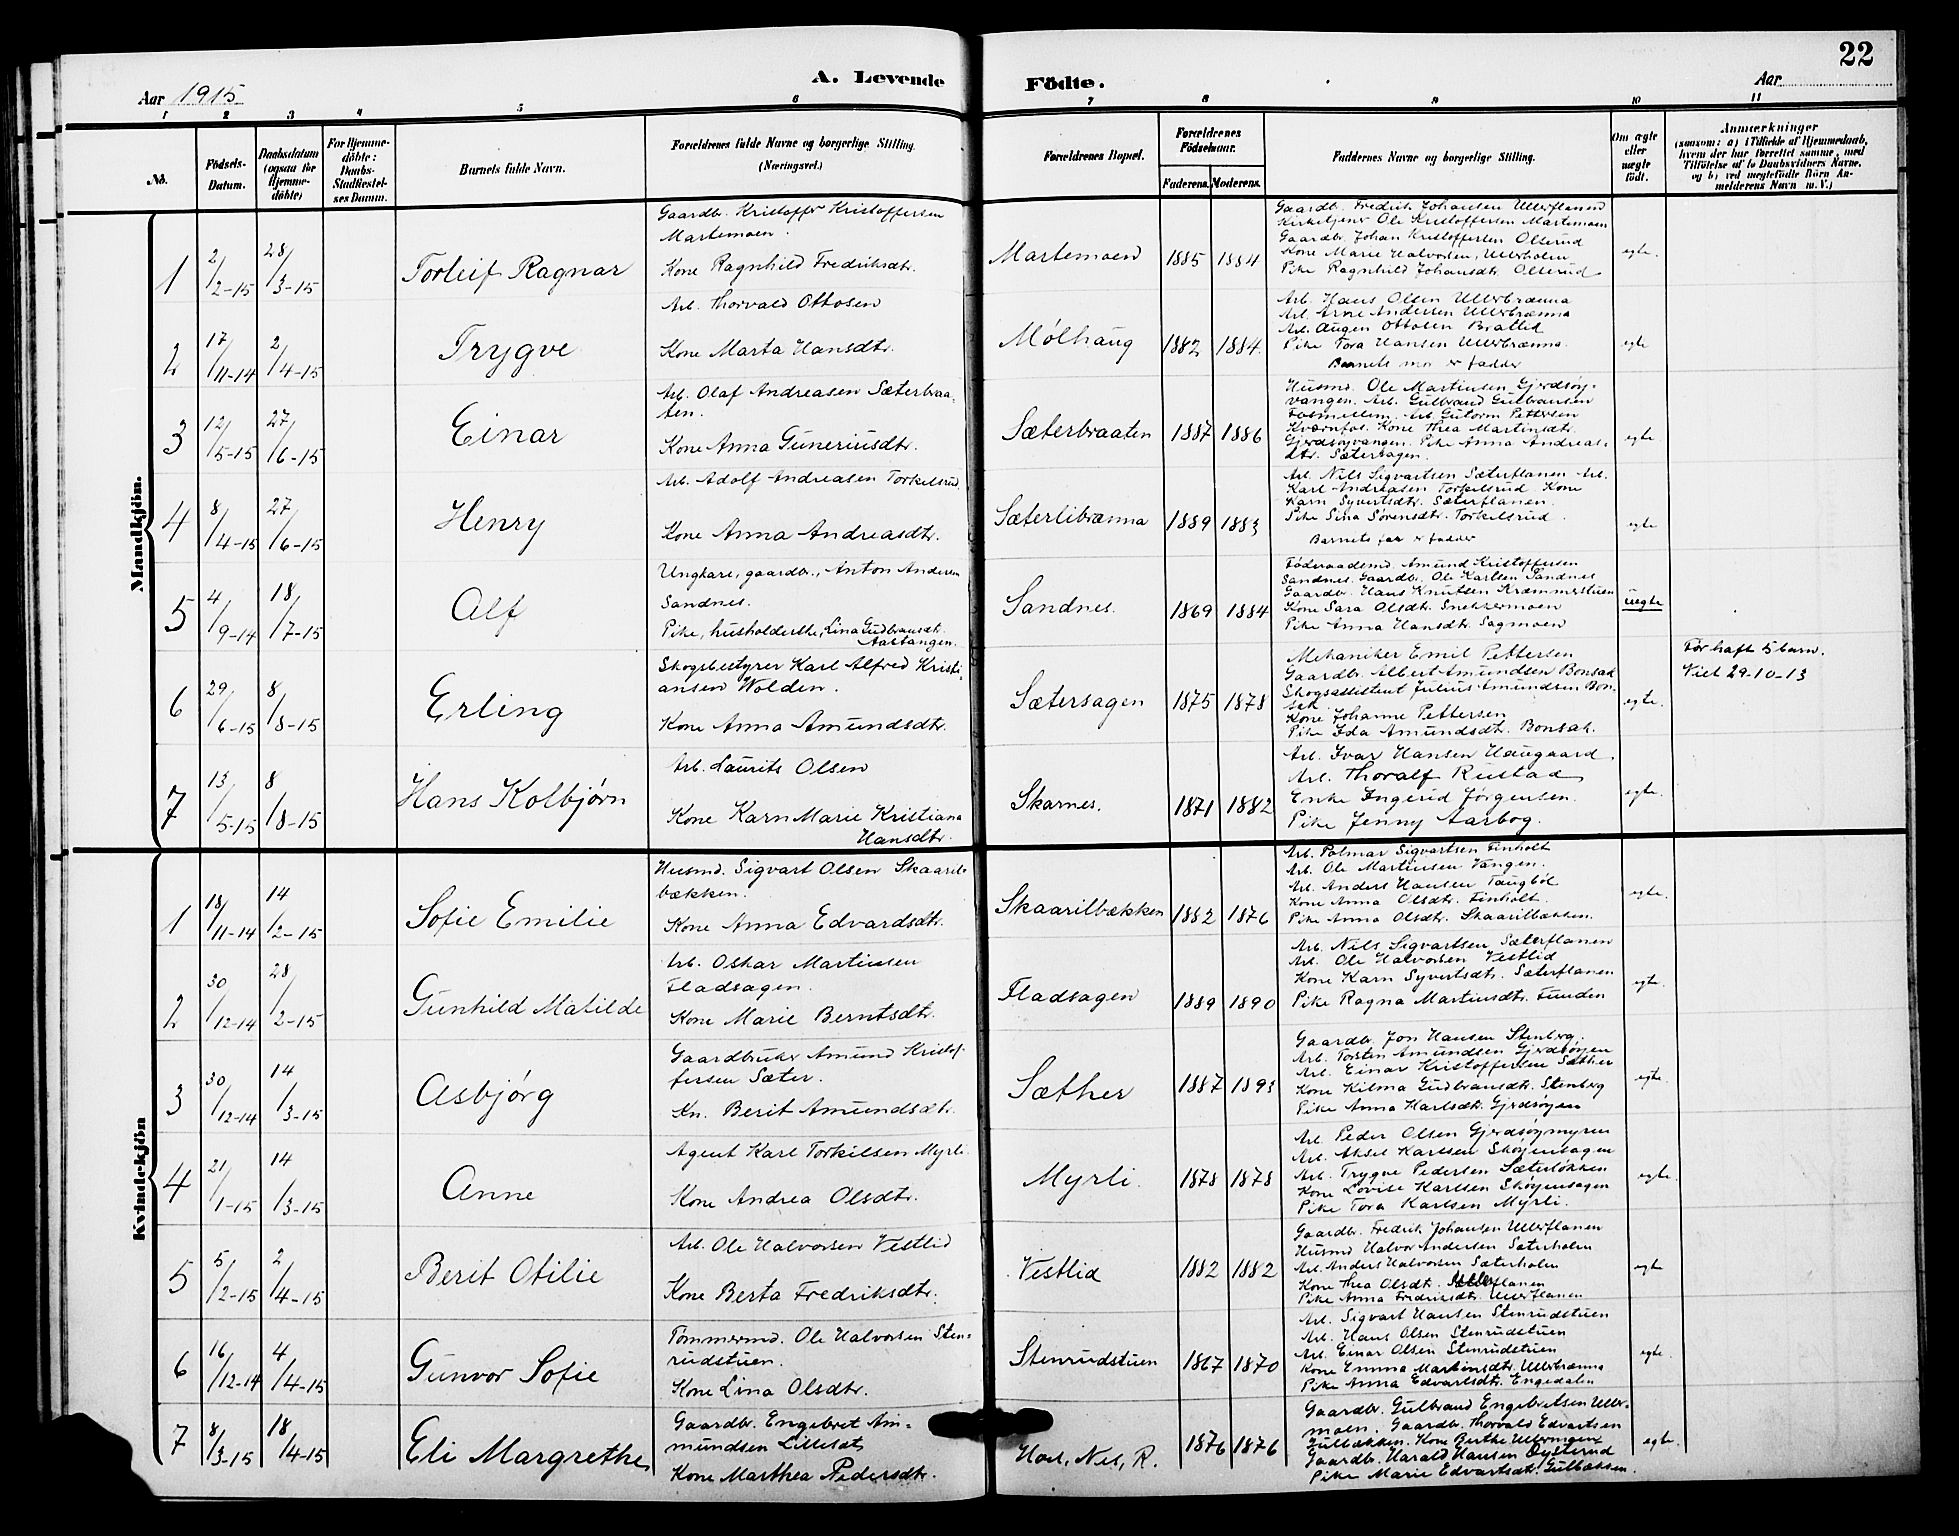 22
A. Levende Födte.
Aar 1915
Aar
1 2 3 4 5 6 7 8 9 10 11
No.
Födsels-Datum.
Daabsdatum (ogsaa for Hjemme-döbte)
For Hjemme-döbte: Daabs-Stadfæstel-ses Datum.
Barnets fulde Navn.
Forældrenes fulde Navne og borgerlige Stilling. (Næringsvei.)
Forældrenes Bopæl.
Forældrenes Födselsaar.
Faderens. Moderens.
Faddernes Navne og borgerlige Stilling.
Om ægte eller uægte födt.
Anmærkninger
(saasom: a) i Tilfælde af Hjemmedaab, hvem der har forrettet samme, med Tilföielse af to Daabsvidners Navne. og b) ved uægtefödte Börn An-melderens Navn m. V.)
Mandkjön.
1 2/2-15 28/3-15 Torleif Ragnar
Gaardbr. Kristoffer Kristoffersen
Martemoen.
Kone Ragnhild Fredriksdtr.
Martemoen 1885 1884
Gaardbr. Fredrik Johansen Ullerflanen
Kirketjener Ole Kristoffersen Martemoen
Gaardbr. Johan Kristoffersen Olserud
Kone Marie Halvorsen, Ullerholm
Pike Ragnhild Johansdtr. Olserud
egte.
2 17/11-14 2/4-15 Trygve
Arb. Thorvald Ottosen
Kone Marta Hansdtr.
Mølhaug 1882 1884
Arb. Hans Olsen Ullerbrænna
Arb. Arne Andersen Ullerbrænna
Arb. Augen Ottosen Bratlid
Pike Tora Hansen Ullerbrænna.
Barnets mor er fadder
egte
3 12/5-15 27/6-15 Einar
Arb. Olaf Andreasen Sæterbraa-
ten.
Kone Anna Guneriusdtr.
Sæterbraaten 1887 1886
Husmd. Ole Martinsen Gjerdsøy-
vangen. Arb. Gulbrand Gulbransen
Arb. Gutorm Pettersen
Kone Thea Martinsdtr.
Gjerdsøyvangen. Pike Anna Andreas-
dtr. Sætersagen.
egte
4 8/4-15 27/6-15 Henry
Arb. Adolf Andreasen Torkilsrud.
Kone Anna Andreasdtr.
Sæterlibrænna 1889 1883
Arb. Nils Sigvartsen Sæterflanen Arb.
Karl Andreasen Torkilsrud Kone
Karn Syvertsdtr. Sæterflanen.
Pike Sina Sørensdtr. Torkilsrud.
Barnets far er fadder
egte
5 4/9-14 18/7-15 Alf
Ungkare, gaardbr., Anton Andersen
Sandnes.
Pike, husholderske, Lina Gudbrandsdtr.
Aastangen.
Sandnes. 1869 1884
Föderaadsmd. Amund Kristoffersen
Sandnes. Gaardbr. Ole Karlsen Sandnes
Gaardbr. Hans Knutsen Kræmmerstuen
Kone Sara Olsdtr. Snekkermoen
Pike Anna Hansdtr. Sagmoen
uegte
6 29/6-15 8/8-15 Erling
Skogsbestyrer Karl Alfred Kristi-
ansen Wolden.
Kone Anna Amundsdtr.
Sætersagen 1875 1878
Mekaniker Emil Pettersen
Gaardbr. Albert Amundsen Bonsak
Skogsassistent Julius Amundsen Bon-
sak.
Kone Johanne Pettersen
Pike Ida Amundsdtr. Bonsak.
egte.
Før haft 5 barn.
Viet 29-10-13
7 13/5-15 8/8-15 Hans Kolbjørn
Arb. Laurits Olsen
Kone Karn Marie Kristiana
Hansdtr.
Skarnes. 1871 1882
Arb. Ivar Hansen Haugaard.
Arb. Thoralf Rustad
Enke Ingerid Jørgensen.
Pike Jenny Aarbog.
egte.
Kvindekjön
1 18/11-14 14/2-15 Sofie Emilie
Husmd. Sigvart Olsen Skaaril-
bækken.
Kone Anna Edvardsdtr.
Skaarilbækken 1882 1876
Arb. Palmar Sigvartsen Finholt
Arb. Ole Martinsen Vangen.
Arb. Anders Hansen Taugbøl
Kone Anna Olsdtr. Finholt.
Pike Anna Olsdtr. Skaarilbækken.
egte.
2 30/12-14 28/2-15 Gunhild Matilde
Arb. Oskar Martinsen
Fladsagen.
Kone Marie Berntsdtr.
Fladsagen 1889 1890
Arb. Nils Sigvartsen Sæterflanen
Arb. Ole Halvorsen Vestlid
Kone Karn Syvertsdtr. Sæterflanen
Pike Ragna Martinsdtr. Funden
egte.
3 30/12-14 14/3-15 Asbjørg
Gaardbruker Amund Kristof-
fersen Sæter.
Kn. Berit Amundsdtr.
Sæther 1887 1893
Gaardbr. Jon Hansen Stenberg.
Arb. Torsten Amundsen Gjerdsøyen
Arb. Einar Kristoffersen Sæther
Kone Hilma Gudbransdtr. Stenberg
Pike Anna Karlsdtr. Gjerdsøyen
egte.
4 21/1-15 14/3-15 Anne
Agent Karl Torkilsen Myrli.
Kone Andrea Olsdtr.
Myrli. 1878 1878
Arb. Peder Olsen Gjerdsøymyren
Arb. Aksel Karlsen Skøyenhagen
Arb. Trygve Pedersen Sæterløkken
Kone Lovise Karlsen Skøyenhagen
Pike Tora Karlsen Myrli.
egte.
5 5/2-15 2/4-15 Berit Otilie
Arb. Ole Halvorsen Vestlid
Kone Berta Fredriksdtr.
Vestlid 1882 1882
Gaardbr. Fredrik Johansen Ullerflanen
Husmd Halvor Andersen Sæterholm
Arb. Anders Halvorsen Sæterholm
Kone Thea Olsdtr. Ullerflanen
Pike Anna Fredriksdtr. Ullerflanen
egte
6 16/12-14 4/4-15 Gunvor Sofie
Tømmermd. Ole Halvorsen Sten-
rudstuen.
Kone Lina Olsdtr.
Stenrudstuen 1867 1870
Arb. Sigvart Hansen Stenrudstuen
Arb. Hans Olsen Stenrudstuen
Arb. Einar Olsen Stenrudstuen
Kone Emma Martinsdtr. Ullerbrænna
Pike Anna Edvartsdtr. Engedalen
egte.
7 8/3-15 18/4-15 Eli Margrethe
Gaardbr. Engebret Am-
mundsen Lillesæt
Kone Marthea Pedersdtr.
Hoel, Nes, R. 1876 1876
Gaardbr. Gulbrand Engebretsen Uller-
moen. Gaardbr. Thorvald Edvartsen
Gulbækken. Kone Berthe Ullringen
Gaardbr. Harald Hansen Oysterud
Pike Marie Edvartsdtr. Gulbækken.
egte.